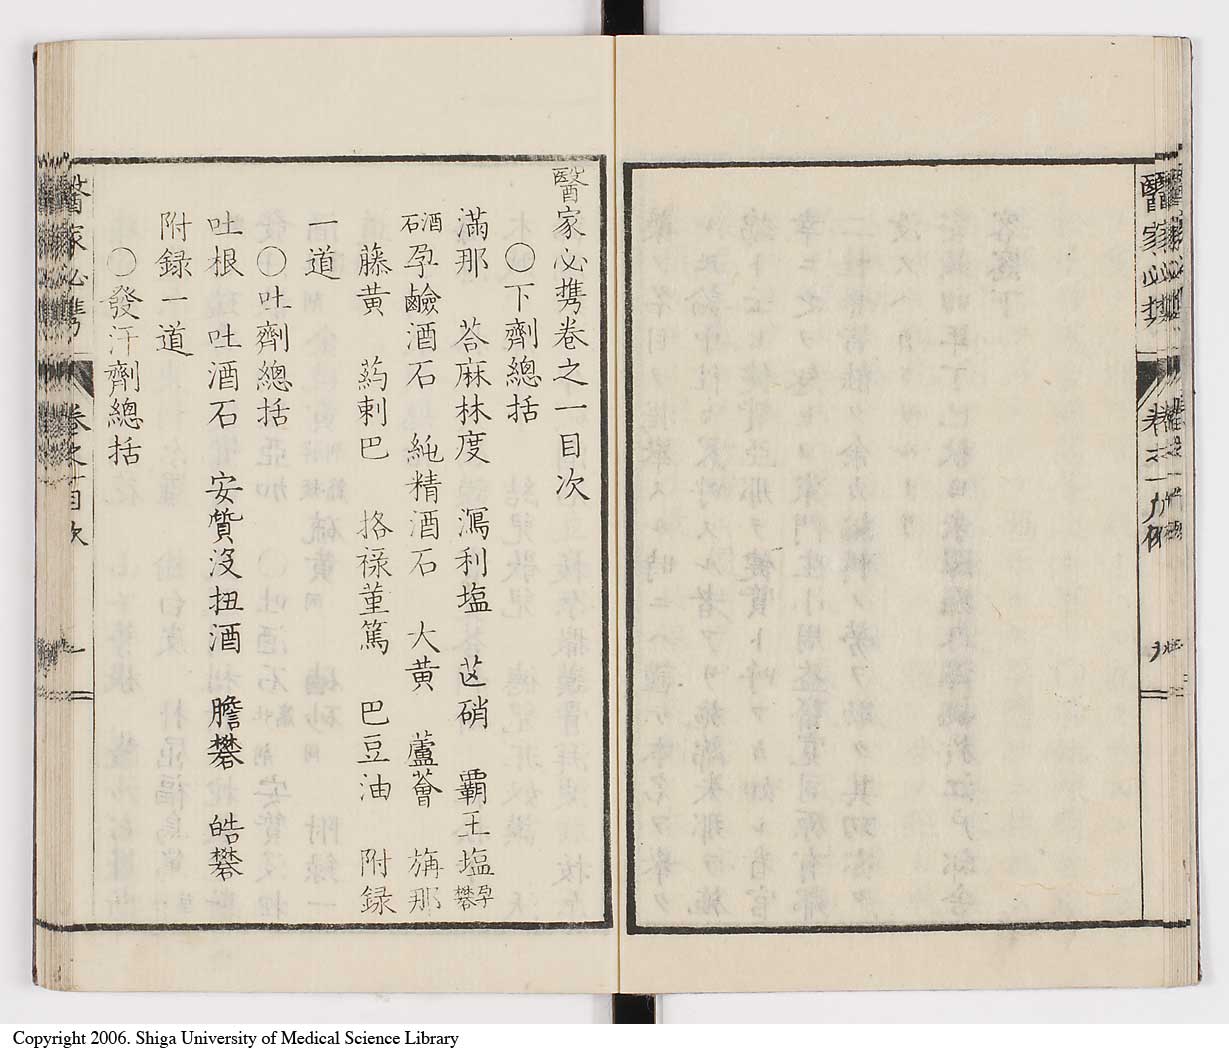 醫家必携卷之一目次
〇下劑總括
滿那 荅麻林度 瀉利塩 芒硝 覇王塩 孕礬
酒石孕鹼酒石 純精酒石 大黃 蘆薈 旃那
藤黃 葯剌巴 挌禄菫篤 巴豆油 附録
一道
〇吐劑總括
吐根 吐酒石 安質没扭酒 膽礬 皓礬
附録一道
〇發汗劑總括
醫家必携 卷之一目次 一
Copyright 2006. Shiga University of Medical Science Library